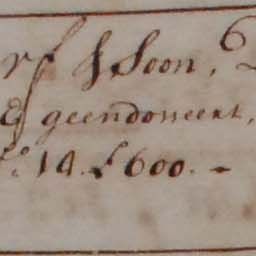 rf & Soon, 6
& geendosseert,
Fo: 14. £ 600. -